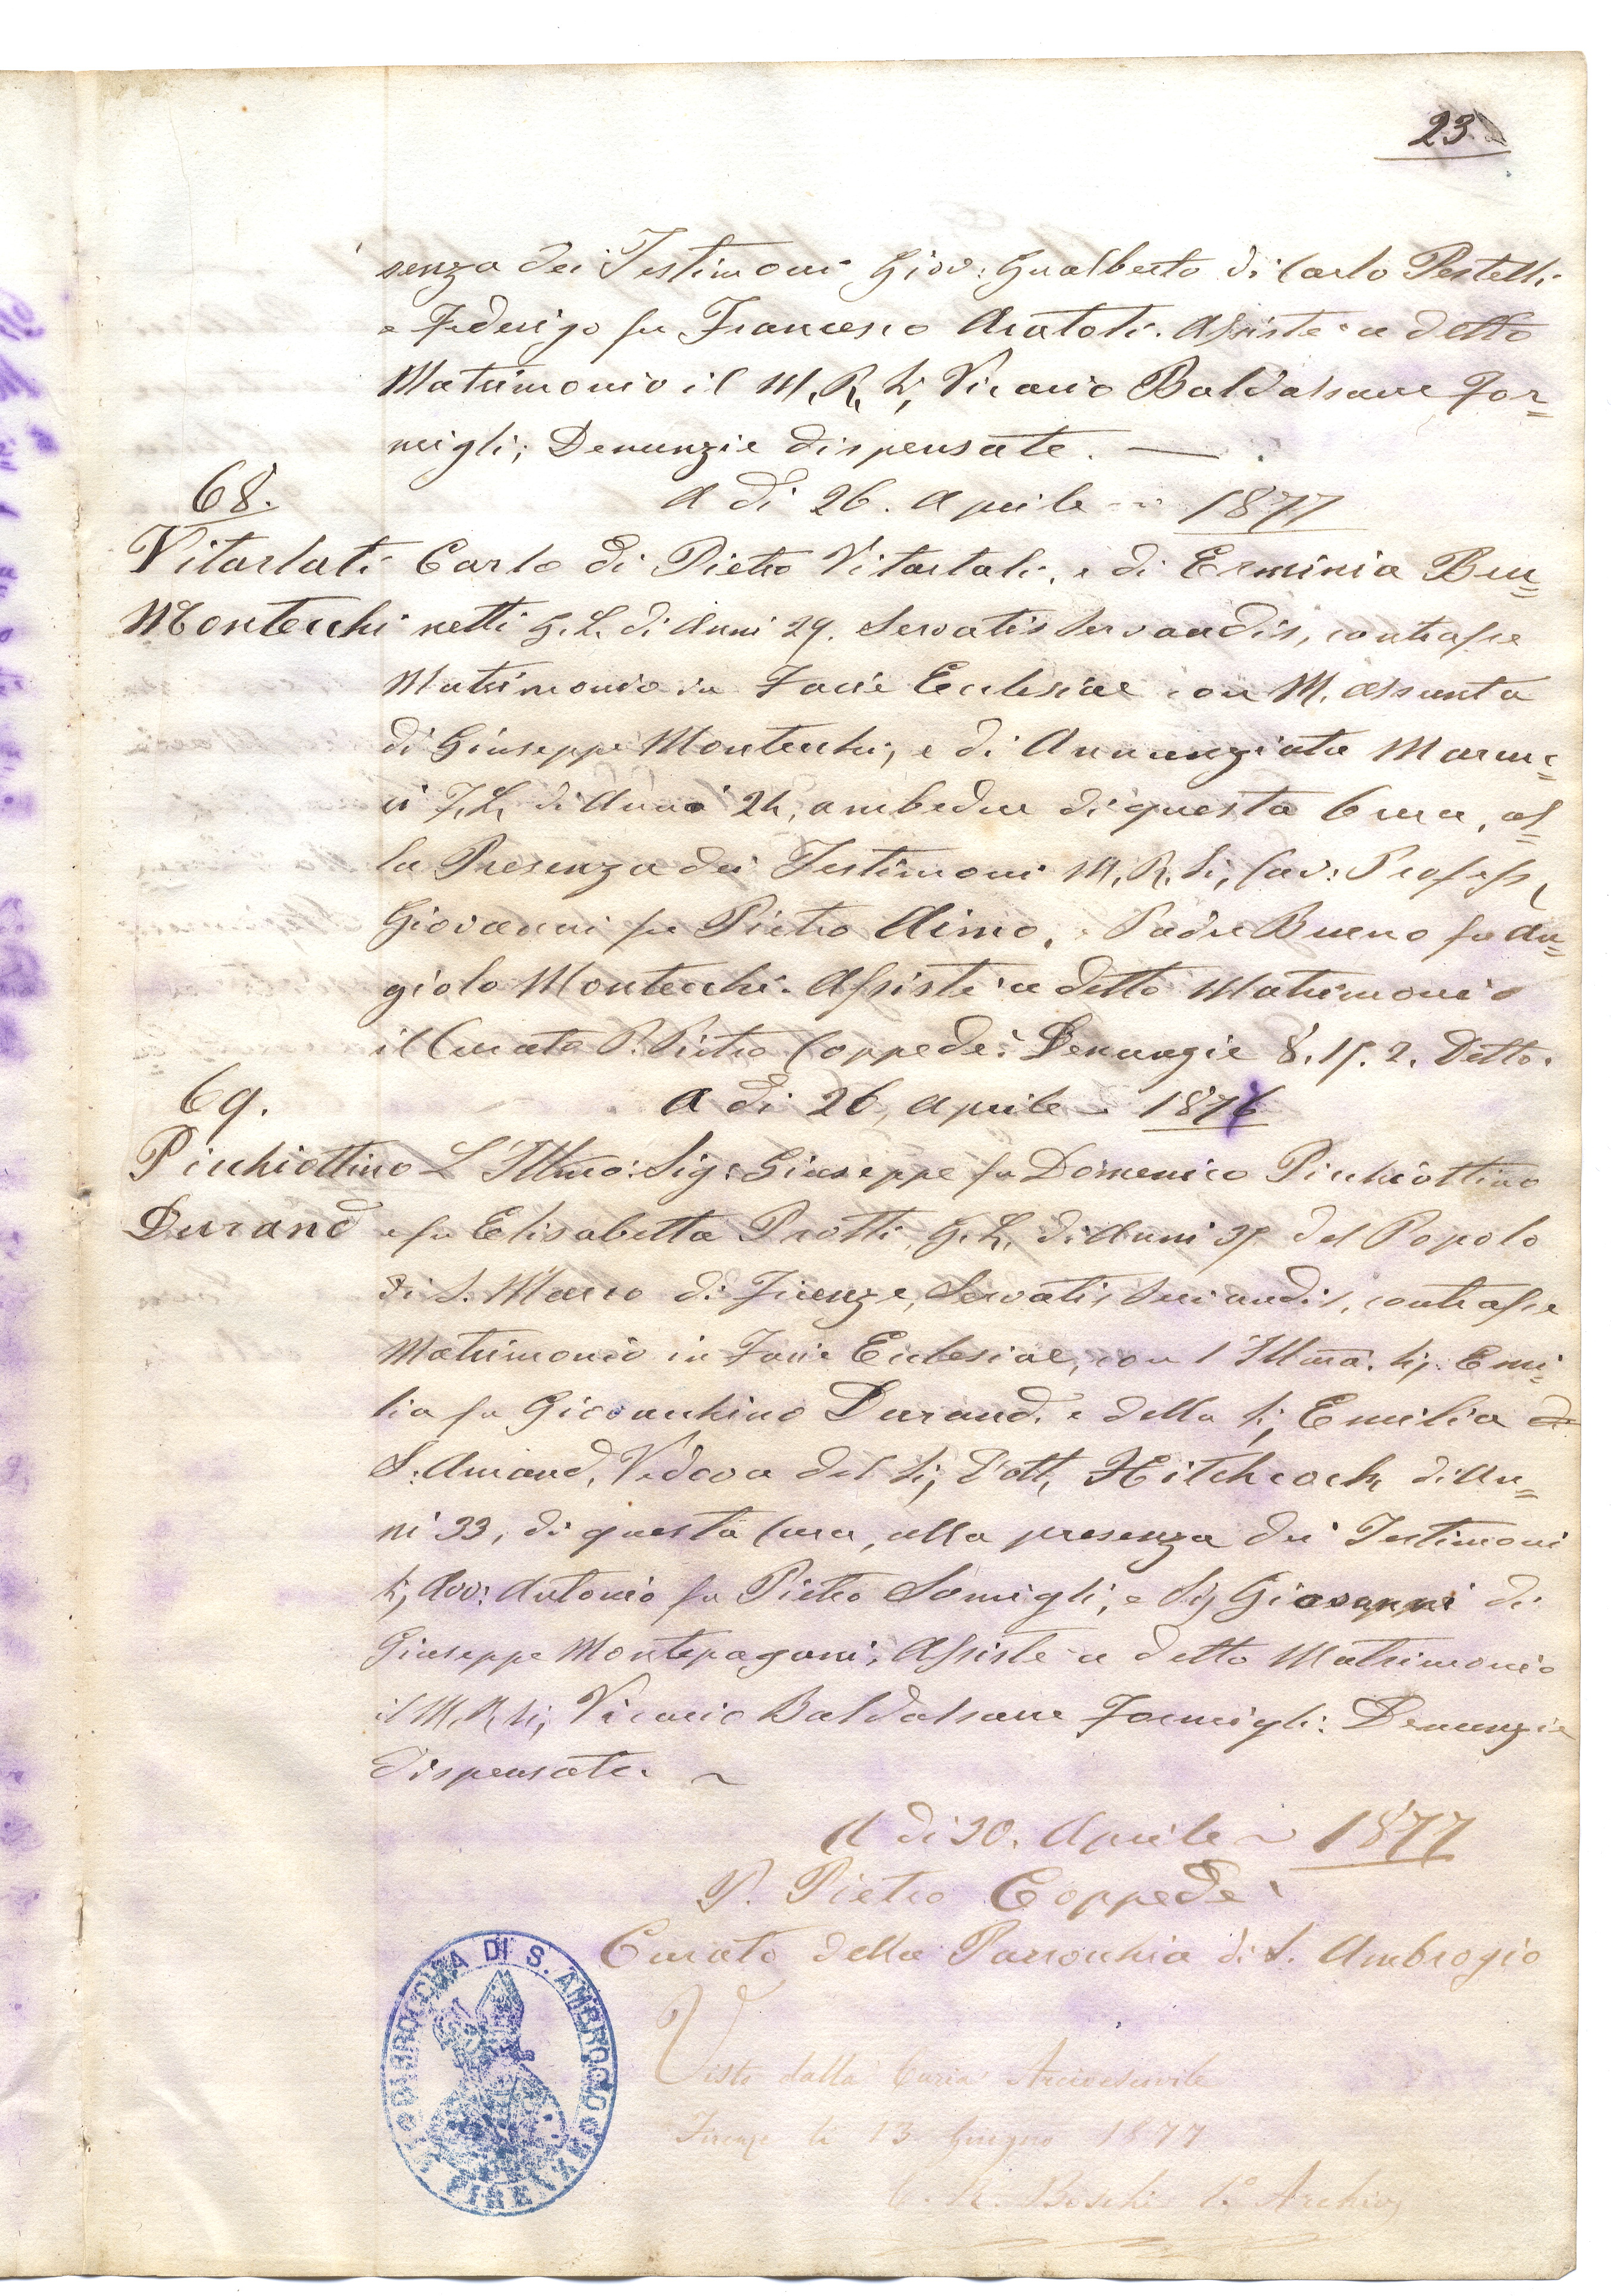 23.
senza dei Testimoni Giov: Gualberto di Carlo Pestelli
e Federigo fu Francesco Aratoli. Assistè a detto
Matrimonio il M. R. Sig. Vicario Baldassarre For=
migli; Denunzie dispensate. —
68.
A di 26. Aprile - 1877
Vitarlati
Montecchi
Carlo di Pietro Vitartali, e di Erminia Be
netti G. L. di Anni 29. Servatis Servandis, contrasse
Matrimonio in Facie Ecclesiae con M. Assunta
di Giuseppe Montecchi, e di Annunziata
ci F. L. di Anni 24, ambedue di questa Cura, al=
la Presenza dei Testimoni M. R. Sig. Cav: Profess.
Giovanni fu Pietro Aimo, e Padre Bueno fu An=
giolo Montecchi. Assistè a detto Matrimonio
il Curato P. Pietro Coppedè: Denunzie 8. 15. 2. Detto.
69.
A di 26, Aprile - 1876
Picchiottino
Durand
L'Illmo: Sig: Giuseppe fu Domenico Picchiottino
e fu Elisabetta Protti, G. L. di Anni 35 del Popolo
di S. Marco di Firenze, Servatis Servandis, contrasse
Matrimonio in Facie Ecclesiae, con l'Illma. Sig. Emi=
lia fu Giovacchino Durand, e della Sig. Emilia de
S. Amand, Vedova del Sig. Dott. Hitchcock di An=
ni 33, di questa Cura, alla presenza dei Testimoni
Sig. Avv: Antonio fu Pietro Somigli, e Sig. Giovanni di
Giuseppe Montepagani, Assistè a detto Matrimonio
il M. R. Sig. Vicario Baldassarre Formigli: Denunzie
dispensate. ~
A di 30. Aprile ~ 1877
P. Pietro Coppedè
Curato della Parrocchia di S. Ambrogio
Visto dalla Curia Arcivescovile
Firenze li 15 Giugno 1877
Boschi Archiv.
DI S. AMBROGIO
FIRENZE